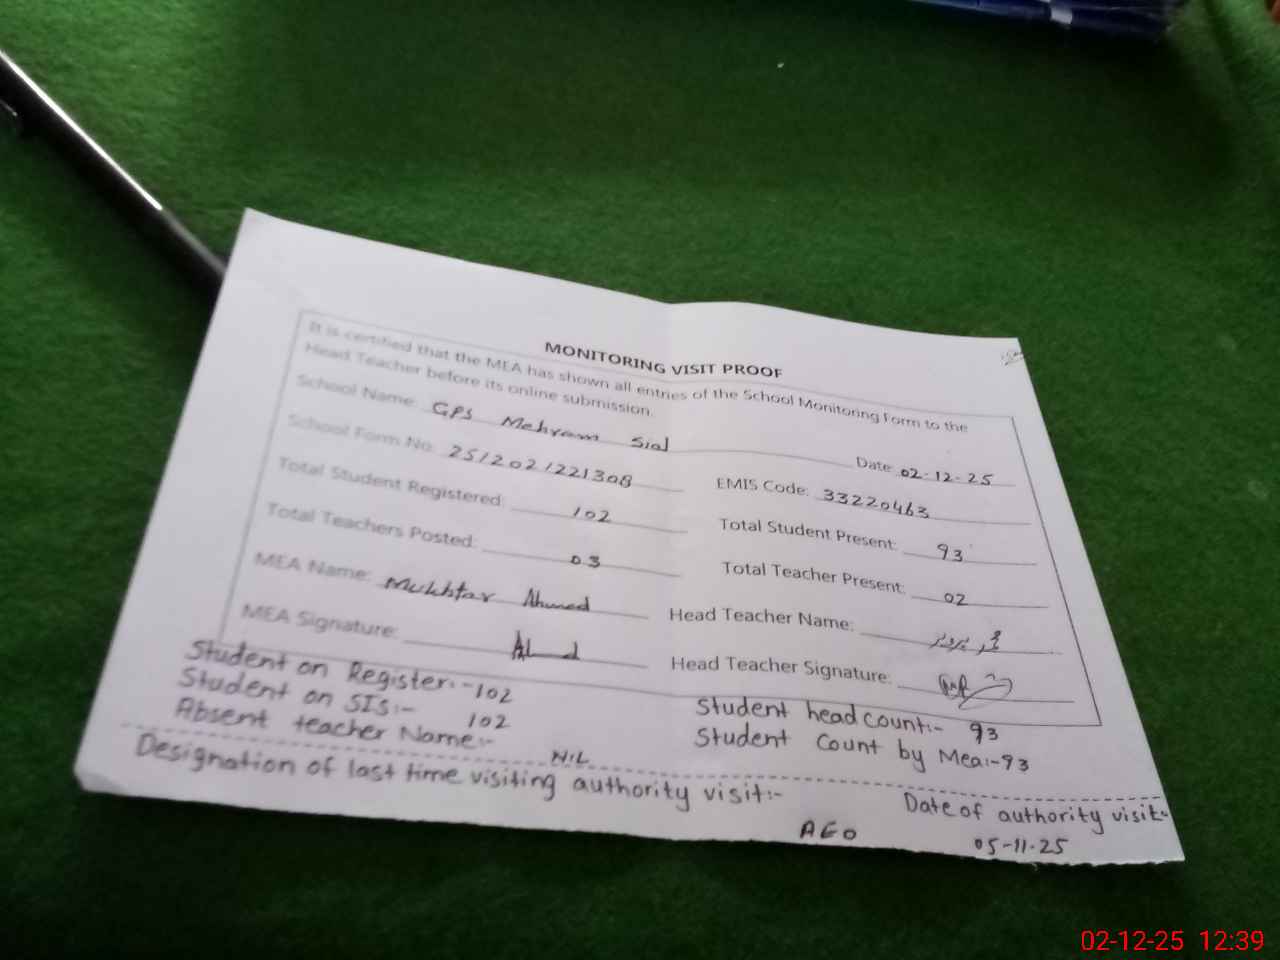 MONITORING VISIT PROOF
It is certified that the MEA has shown all entries of the School Monitoring Form to the
Head Teacher before its online submission.
School Name: GPS Mehram Sial Date: 02-12-25
School Form No: 2512021221308 EMIS Code: 33220463
Total Student Registered: 102 Total Student Present: 93
Total Teachers Posted: 03 Total Teacher Present: 02
MEA Name: Mukhtar Ahmed Head Teacher Name:
MEA Signature: Head Teacher Signature:
Student on Register:-102 Student head count:- 93
Student on SIS:- 102 Student Count by Mea:-93
Absent teacher Name:- NIL
Designation of last time visiting authority visit:- Date of authority visit:-
AEO 05-11-25
02-12-25 12:39